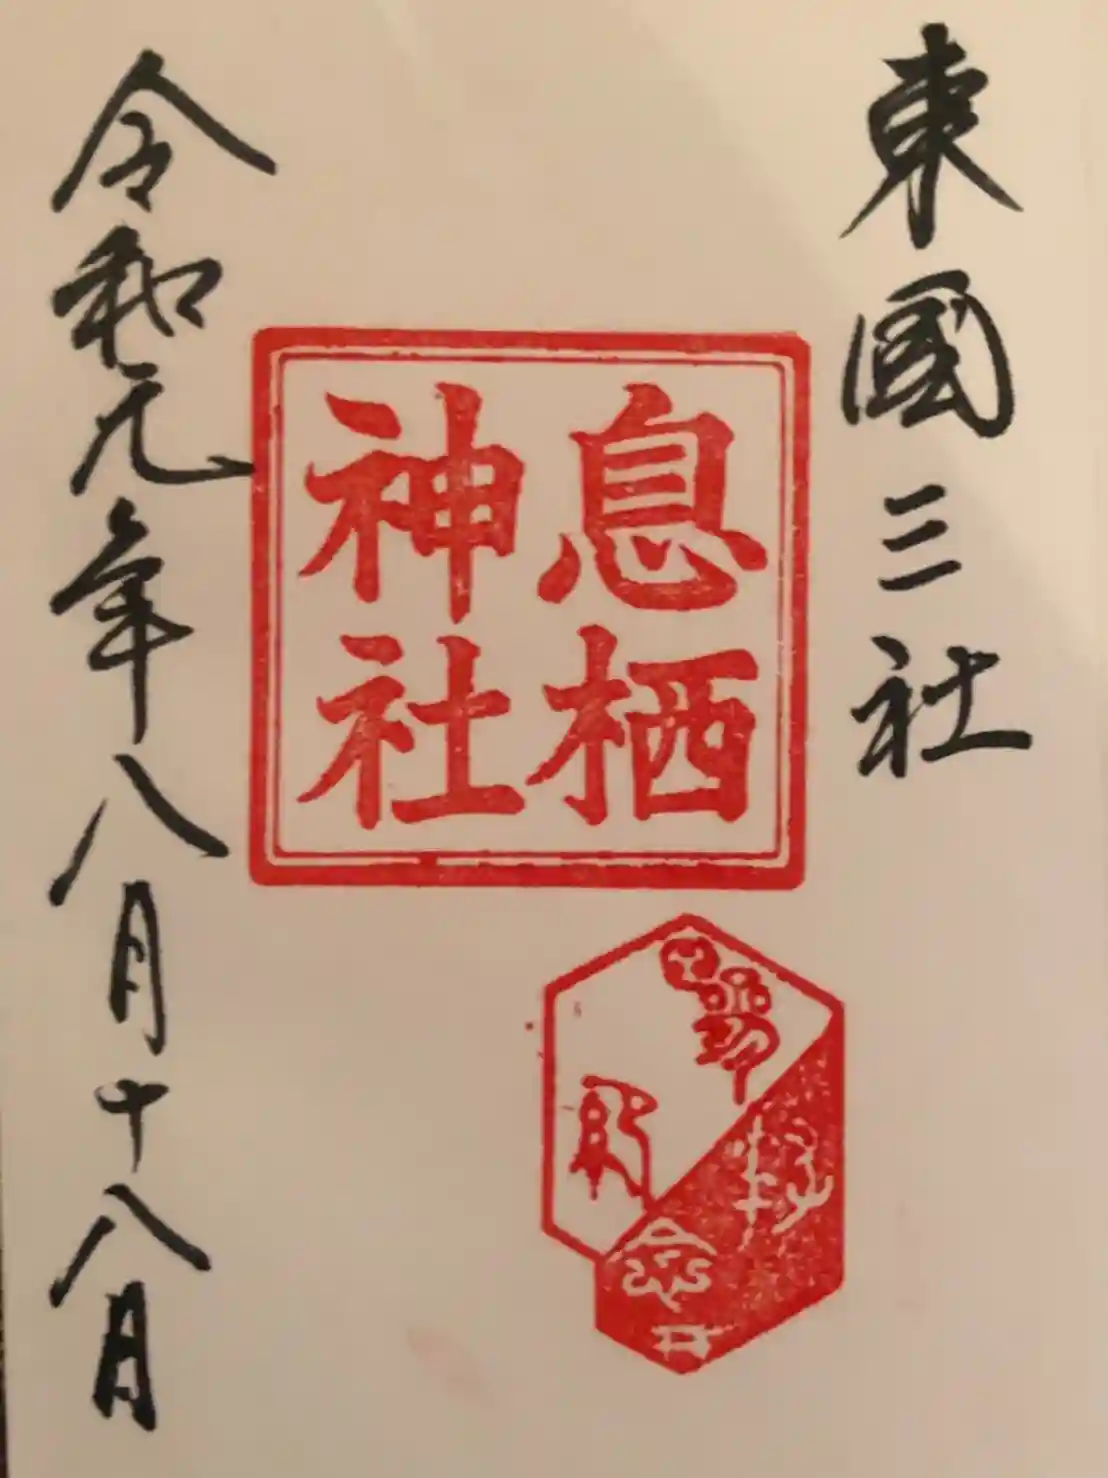 東國三社
息栖
神社
令和元年八月十八日